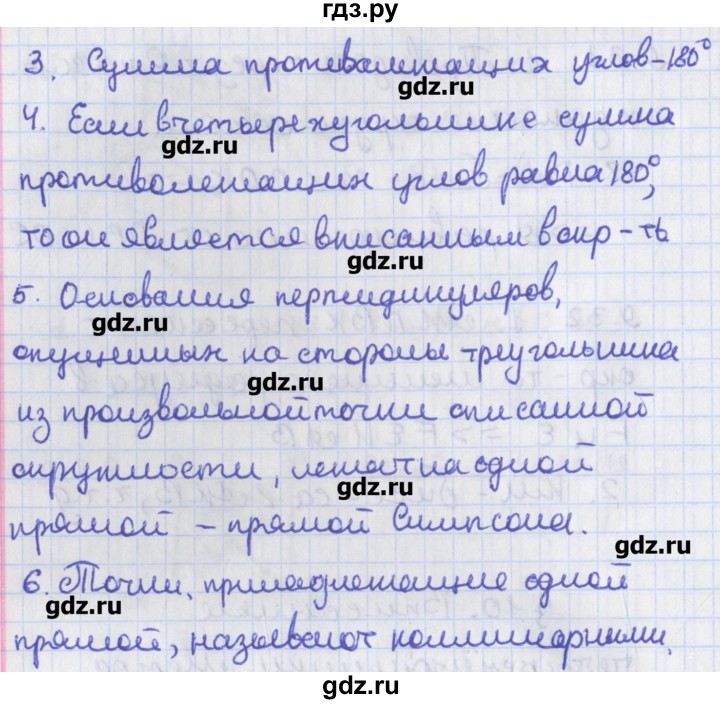 гдз.ру
3. Сумма противолежащих углов – 180°
gdz.ru
4. Если в четырехугольнике сумма
gdz.ru
противолежащих углов равна 180°,
то он является вписанным в окр-ть
gdz.ru
5. Основания перпендикуляров,
gdz.ru
опущенных на стороны треугольника
gdz.ru
из произвольной точки описанной
окружности, лежат на одной
gdz.ru
прямой – прямой Симпсона.
gdz.ru
6. Точки, принадлежащие одной
gdz.ru
прямой, называют коллинарными.
gdz.ru